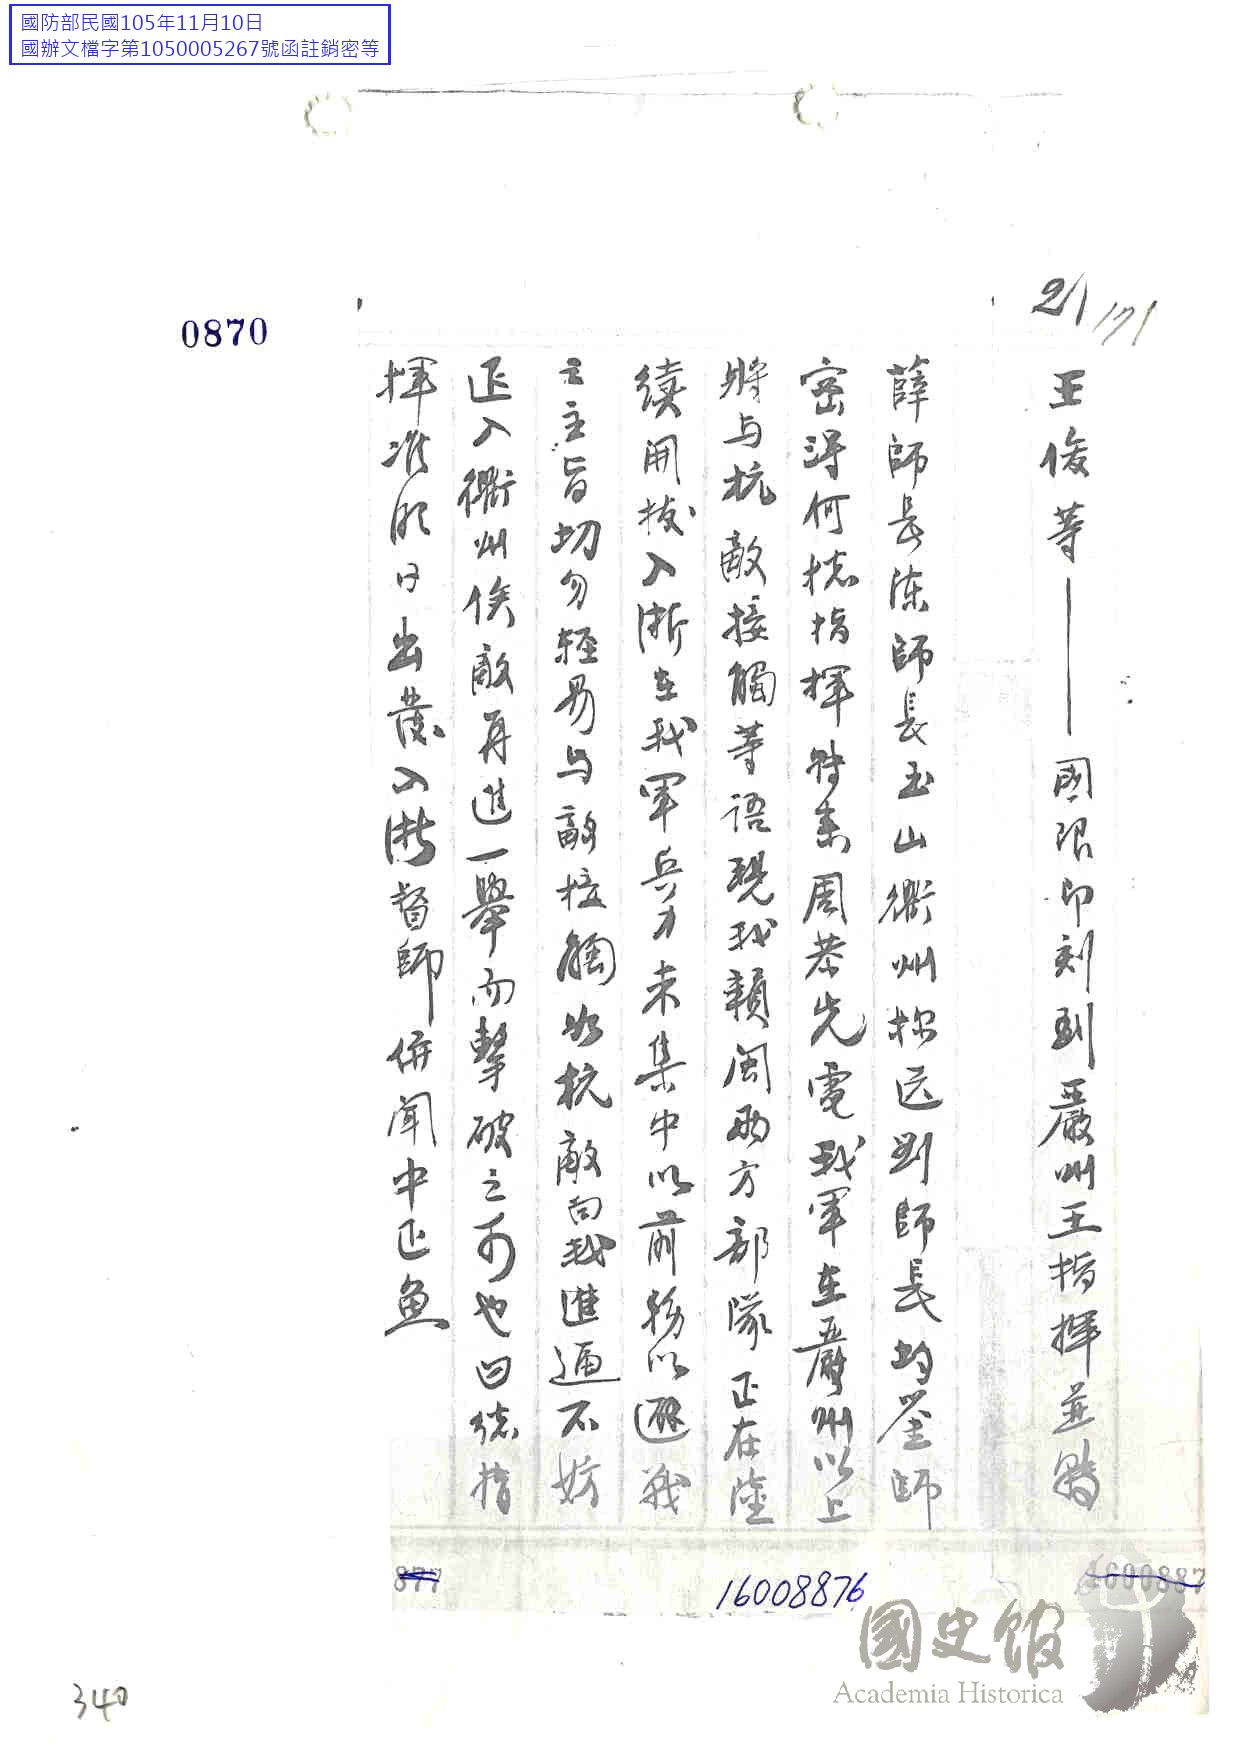 國防部民國105年11月10日
國辦文檔字第1050005267號函註銷密等
0870
21/171
王俊等——國限即刻到嚴州王指揮並轉
薛師長陳師長玉山衢州探送劉師長均鑒師
密得何總指揮特表周恭先電我軍在嚴州以上
將与杭敵接觸等語現我贛閩兩方部隊正在陸
續開拔入浙在我軍兵力未集中以前務以避戰
主旨切勿輕易与敵接觸如杭敵向我進逼不妨
退入衢州俟敵再進一舉而擊破之可也白總指
揮准明日出發入浙督師併聞中正魚
877
16008876
1600887
國史館
Academia Historica
340